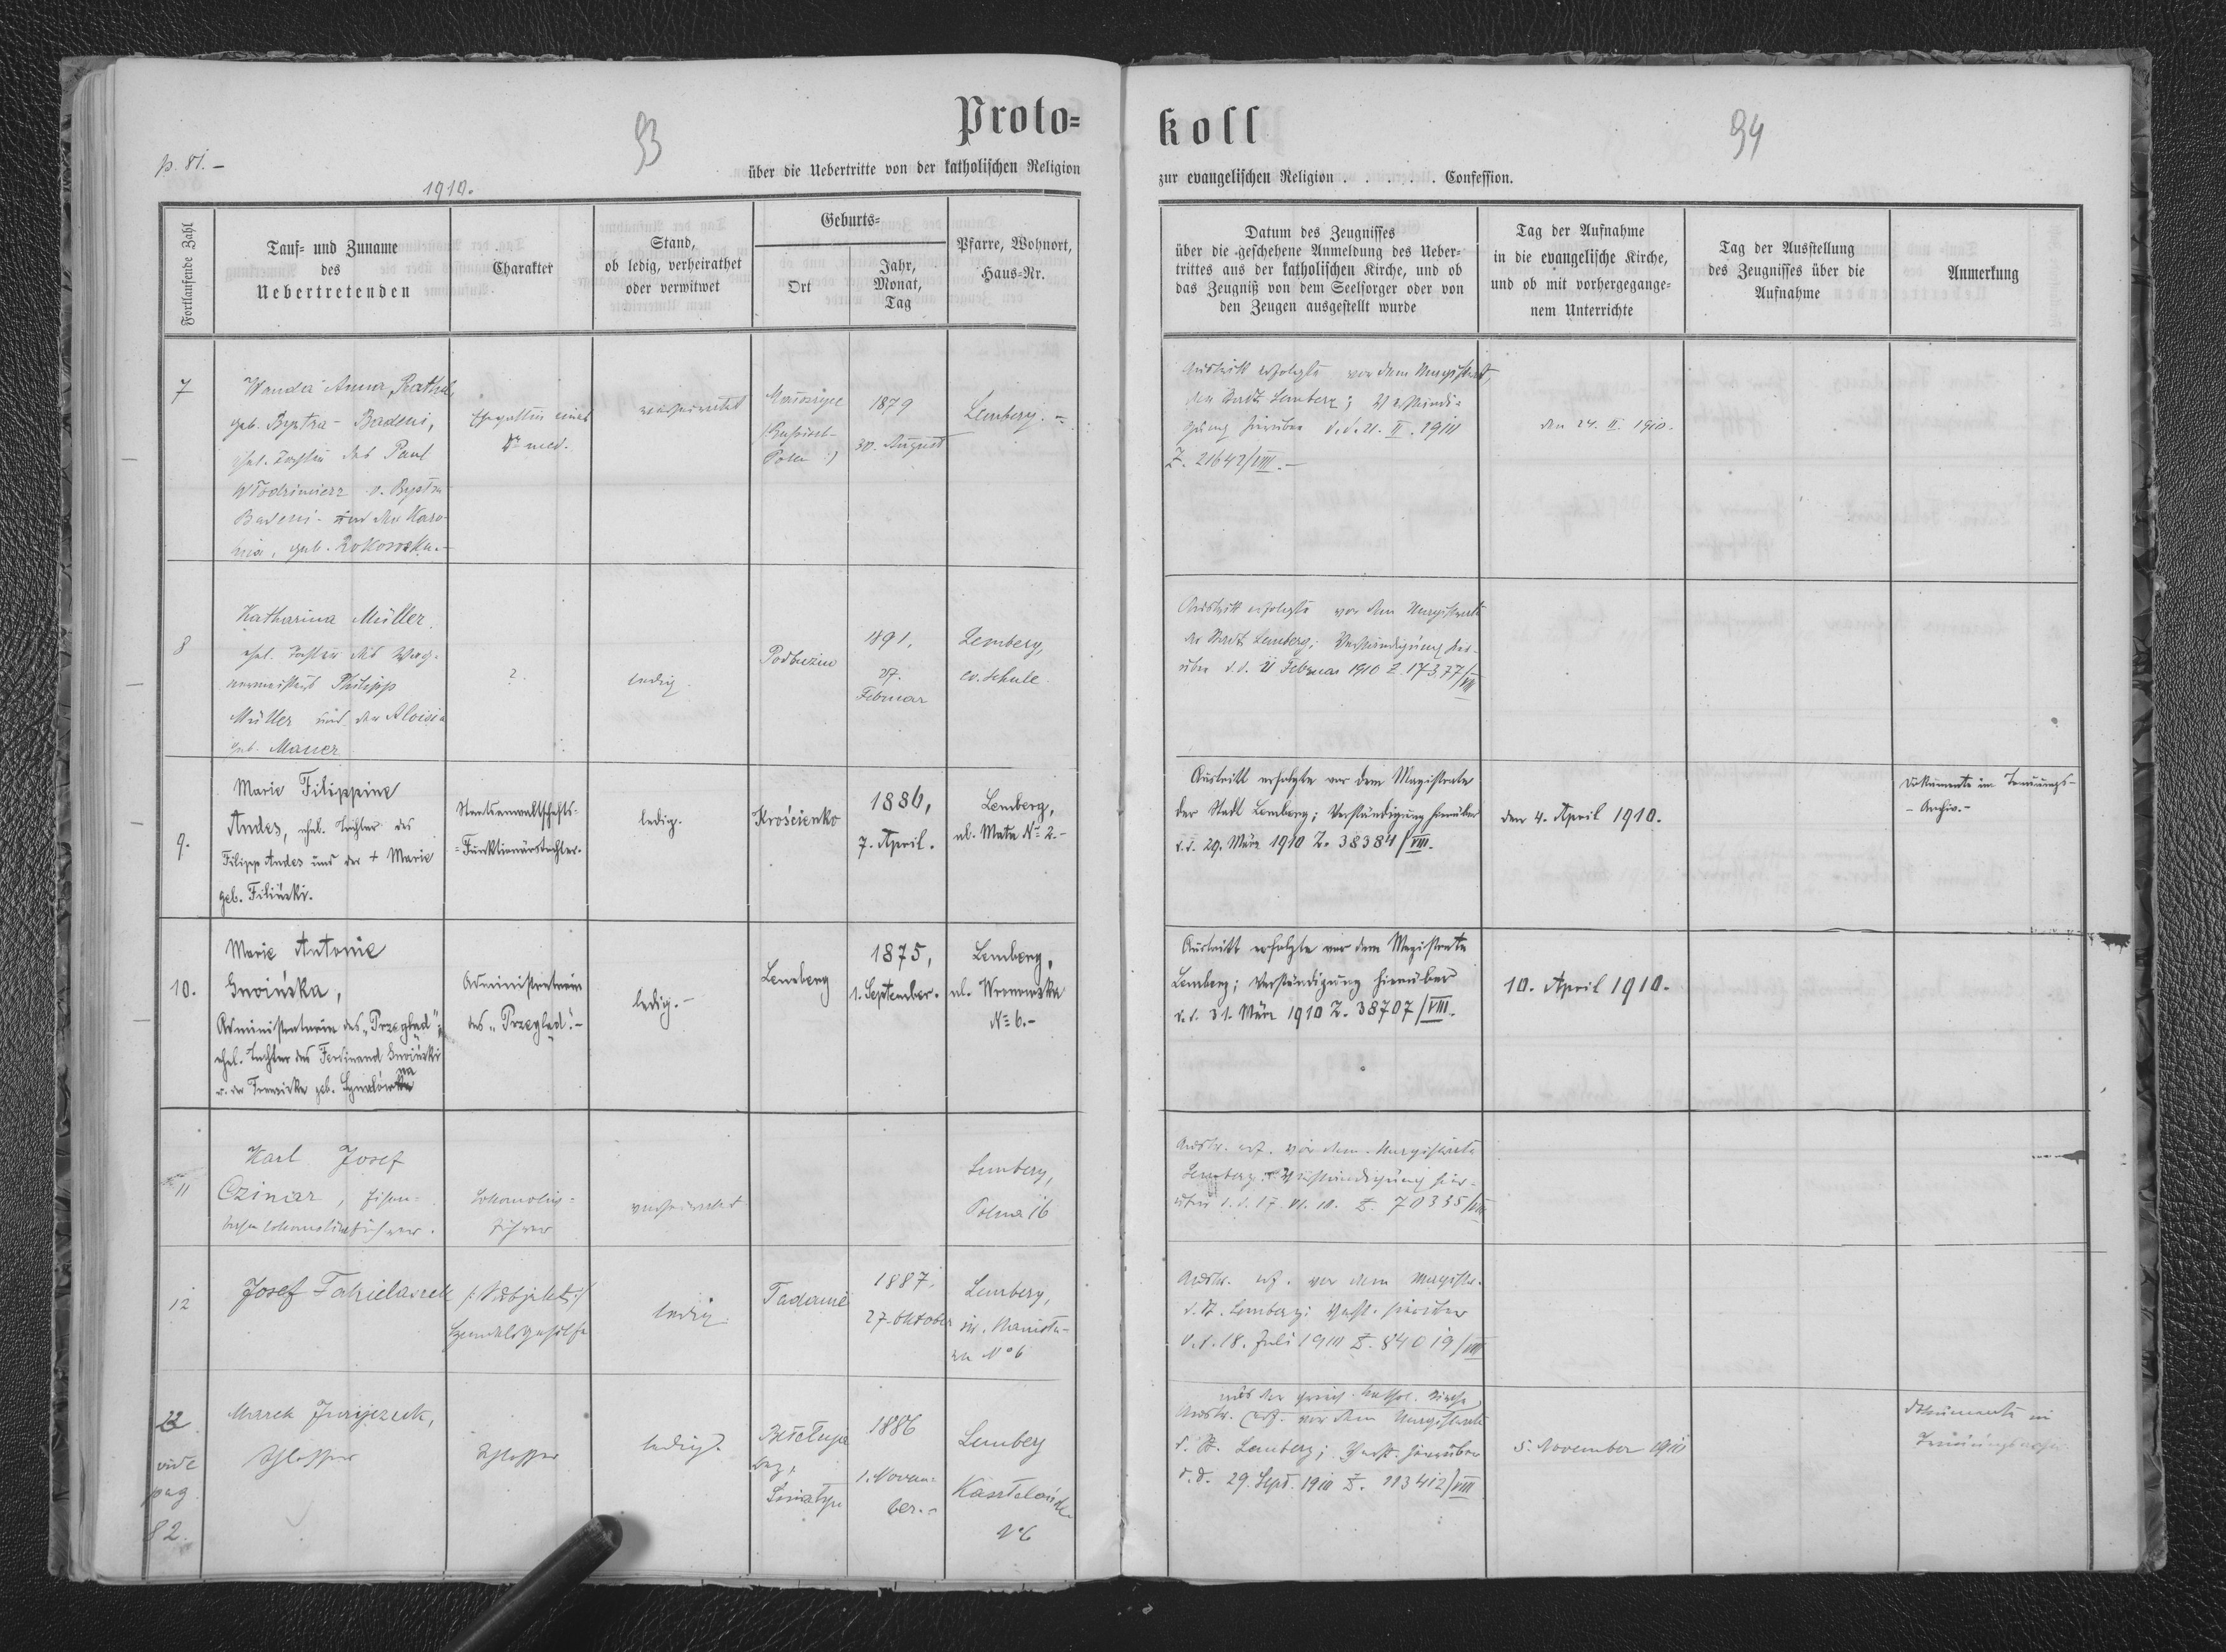 p. 81.–
93
Proto=
koll
94
1910.
über die Uebertritte von der katholischen Religion
zur evangelischen Religion . . . . . . Confession.
Fortlaufende Zahl
Tauf= und Zuname
des
Uebertretenden
Charakter
Stand,
ob ledig, verheirathet
oder verwitwet
Geburts=
Ort
Jahr,
Monat,
Tag
Pfarre, Wohnort,
Haus=Nr.
Datum des Zeugnisses
über die geschehene Anmeldung des Ueber=
trittes aus der katholischen Kirche, und ob
das Zeugniß von dem Seelsorger oder von
den Zeugen ausgestellt wurde
Tag der Aufnahme
in die evangelische Kirche,
und ob mit vorhergegange=
nem Unterrichte
Tag der Ausstellung
des Zeugnisses über die
Aufnahme
Anmerkung
7
Wanda Anna
geb. Bystra - Badeni,
ehel. Tochter des Paul
Włodzimierz v. Bystra
Badeni und der Karo-
geb. Rokowska.–
Ehegattin eines
Dr med.
verheiratet
Polen
1879
30. August
Lemberg.–
Austritt erfolgte vor dem Magistrat,
der Stadt Lemberg; Verständi=
gung hierüber d.d. 21. II. 1910
Z. 21642/VIII.–
den 24. II. 1910.
8
Katharina Müller
ehel. Tochter des
Philipp
Müller und der Aloisia
geb. Mauer
?
ledig
Podbuzin
1891.
27.
Februar
Lemberg,
ev. Schule.
Austritt erfolgte vor dem Magistrate
der Stadt Lemberg; Verständigung hier-
über d.d. 11 Februar 1910 Z. 17377/VIII
9.
Marie Filippine
Andes, ehel. Tochter des
Filipp Andes und der + Marie
geb. Filiński.
Staatsanwaltschafts=
=Funktionärstochter.
ledig.
Krościenko
1886,
7. April.
Lemberg,
ul. Mała No 2.–
Austritt erfolgte vor dem Magistrate
der Stadt Lemberg; Verständigung hierüber
d.d. 29. März 1910 Z. 38384/VIII.
den 4. April 1910.
Dokumente im Trauungs-
- Archiv.–
10.
Marie Antonie
Gnoińska,
Administratorin des „Przegląd“,
ehel. Tochter des Ferdinand Gnoiński
u. der
Administratorin
des „Przegląd“.–
ledig.–
Lemberg
1875,
1. September.
Lemberg,
ul. Wronowska
No 6.–
Austritt erfolgte vor dem Magistrate
Lemberg; Verständigung hierüber
d.d. 31. März 1910 Z. 38707/VIII.
10. April 1910.
11
Karl Josef
Cziniar, Eisen=
bahnlokomotivführer.
Lokomotiv=
führer
verheiratet
Lemberg,
Polna 16
Austr. erf. vor dem Magistrate
Lemberg; Verständigung hier-
über d.d. 17. VI. 10. Z. 70335/VIII
12
Josef
ledig
Tadanie
1887.
27. Oktober
Lemberg,
No 6
Austr. erf. vor dem Magistr.
d. St. Lemberg; Verst. hierüber
d.d. 18. Juli 1910 Z. 84019/VIII
vide
pag
82.
Marek Jurijczuk,
Schlosser
Schlosser
ledig.
Bełełuja
Śniatyn
1886
1. Novem=
ber.–
Lemberg
No 6
aus der griech. kathol. Kirche
Austr. erf. vor dem Magistrate
d. St. Lemberg; Verst. hierüber
d.d. 29. Sept. 1910 Z. 113412/VIII
5. November 1910
Dokumente im